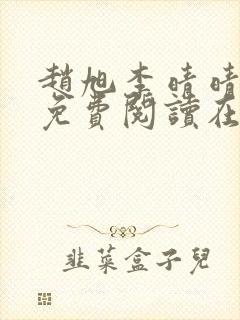 趙旭李晴晴
免費閱讀在
韭菜盒子兒